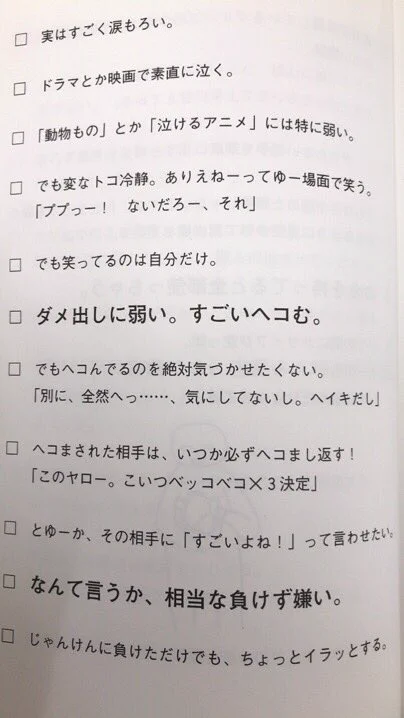 □ 実はすごく涙もろい。
□ ドラマとか映画で素直に泣く。
□ 「動物もの」とか「泣けるアニメ」には特に弱い。
□ でも変なトコ冷静。ありえねーってゆー場面で笑う。
「ププっー！　ないだろー、それ」
□ でも笑ってるのは自分だけ。
□ ダメ出しに弱い。すごいヘコむ。
□ でもヘコんでるのを絶対気づかせたくない。
「別に、全然へっ……、気にしてないし。ヘイキだし」
□ ヘコまされた相手は、いつか必ずヘコまし返す！
「このヤロー。こいつベッコベコ×3決定」
□ とゆーか、その相手に「すごいよね！」って言わせたい。
□ なんて言うか、相当な負けず嫌い。
□ じゃんけんに負けただけでも、ちょっとイラッとする。